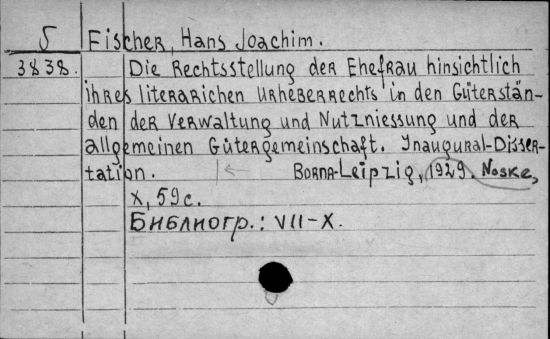 5 Fischer, Hans Joachim.
3838. Die Rechtsstellung der Ehefrau hinsichtlich
ihres literarichen Urheberrechts in den Güterstän-
den der Verwaltung und Nutzniessung und der
allgemeinen Gütergemeinschaft. Inaugural-Disser-
tation. Borna-Leipzig, 1929. Noske,
X, 59 с.
Библиогр.: VII-X.